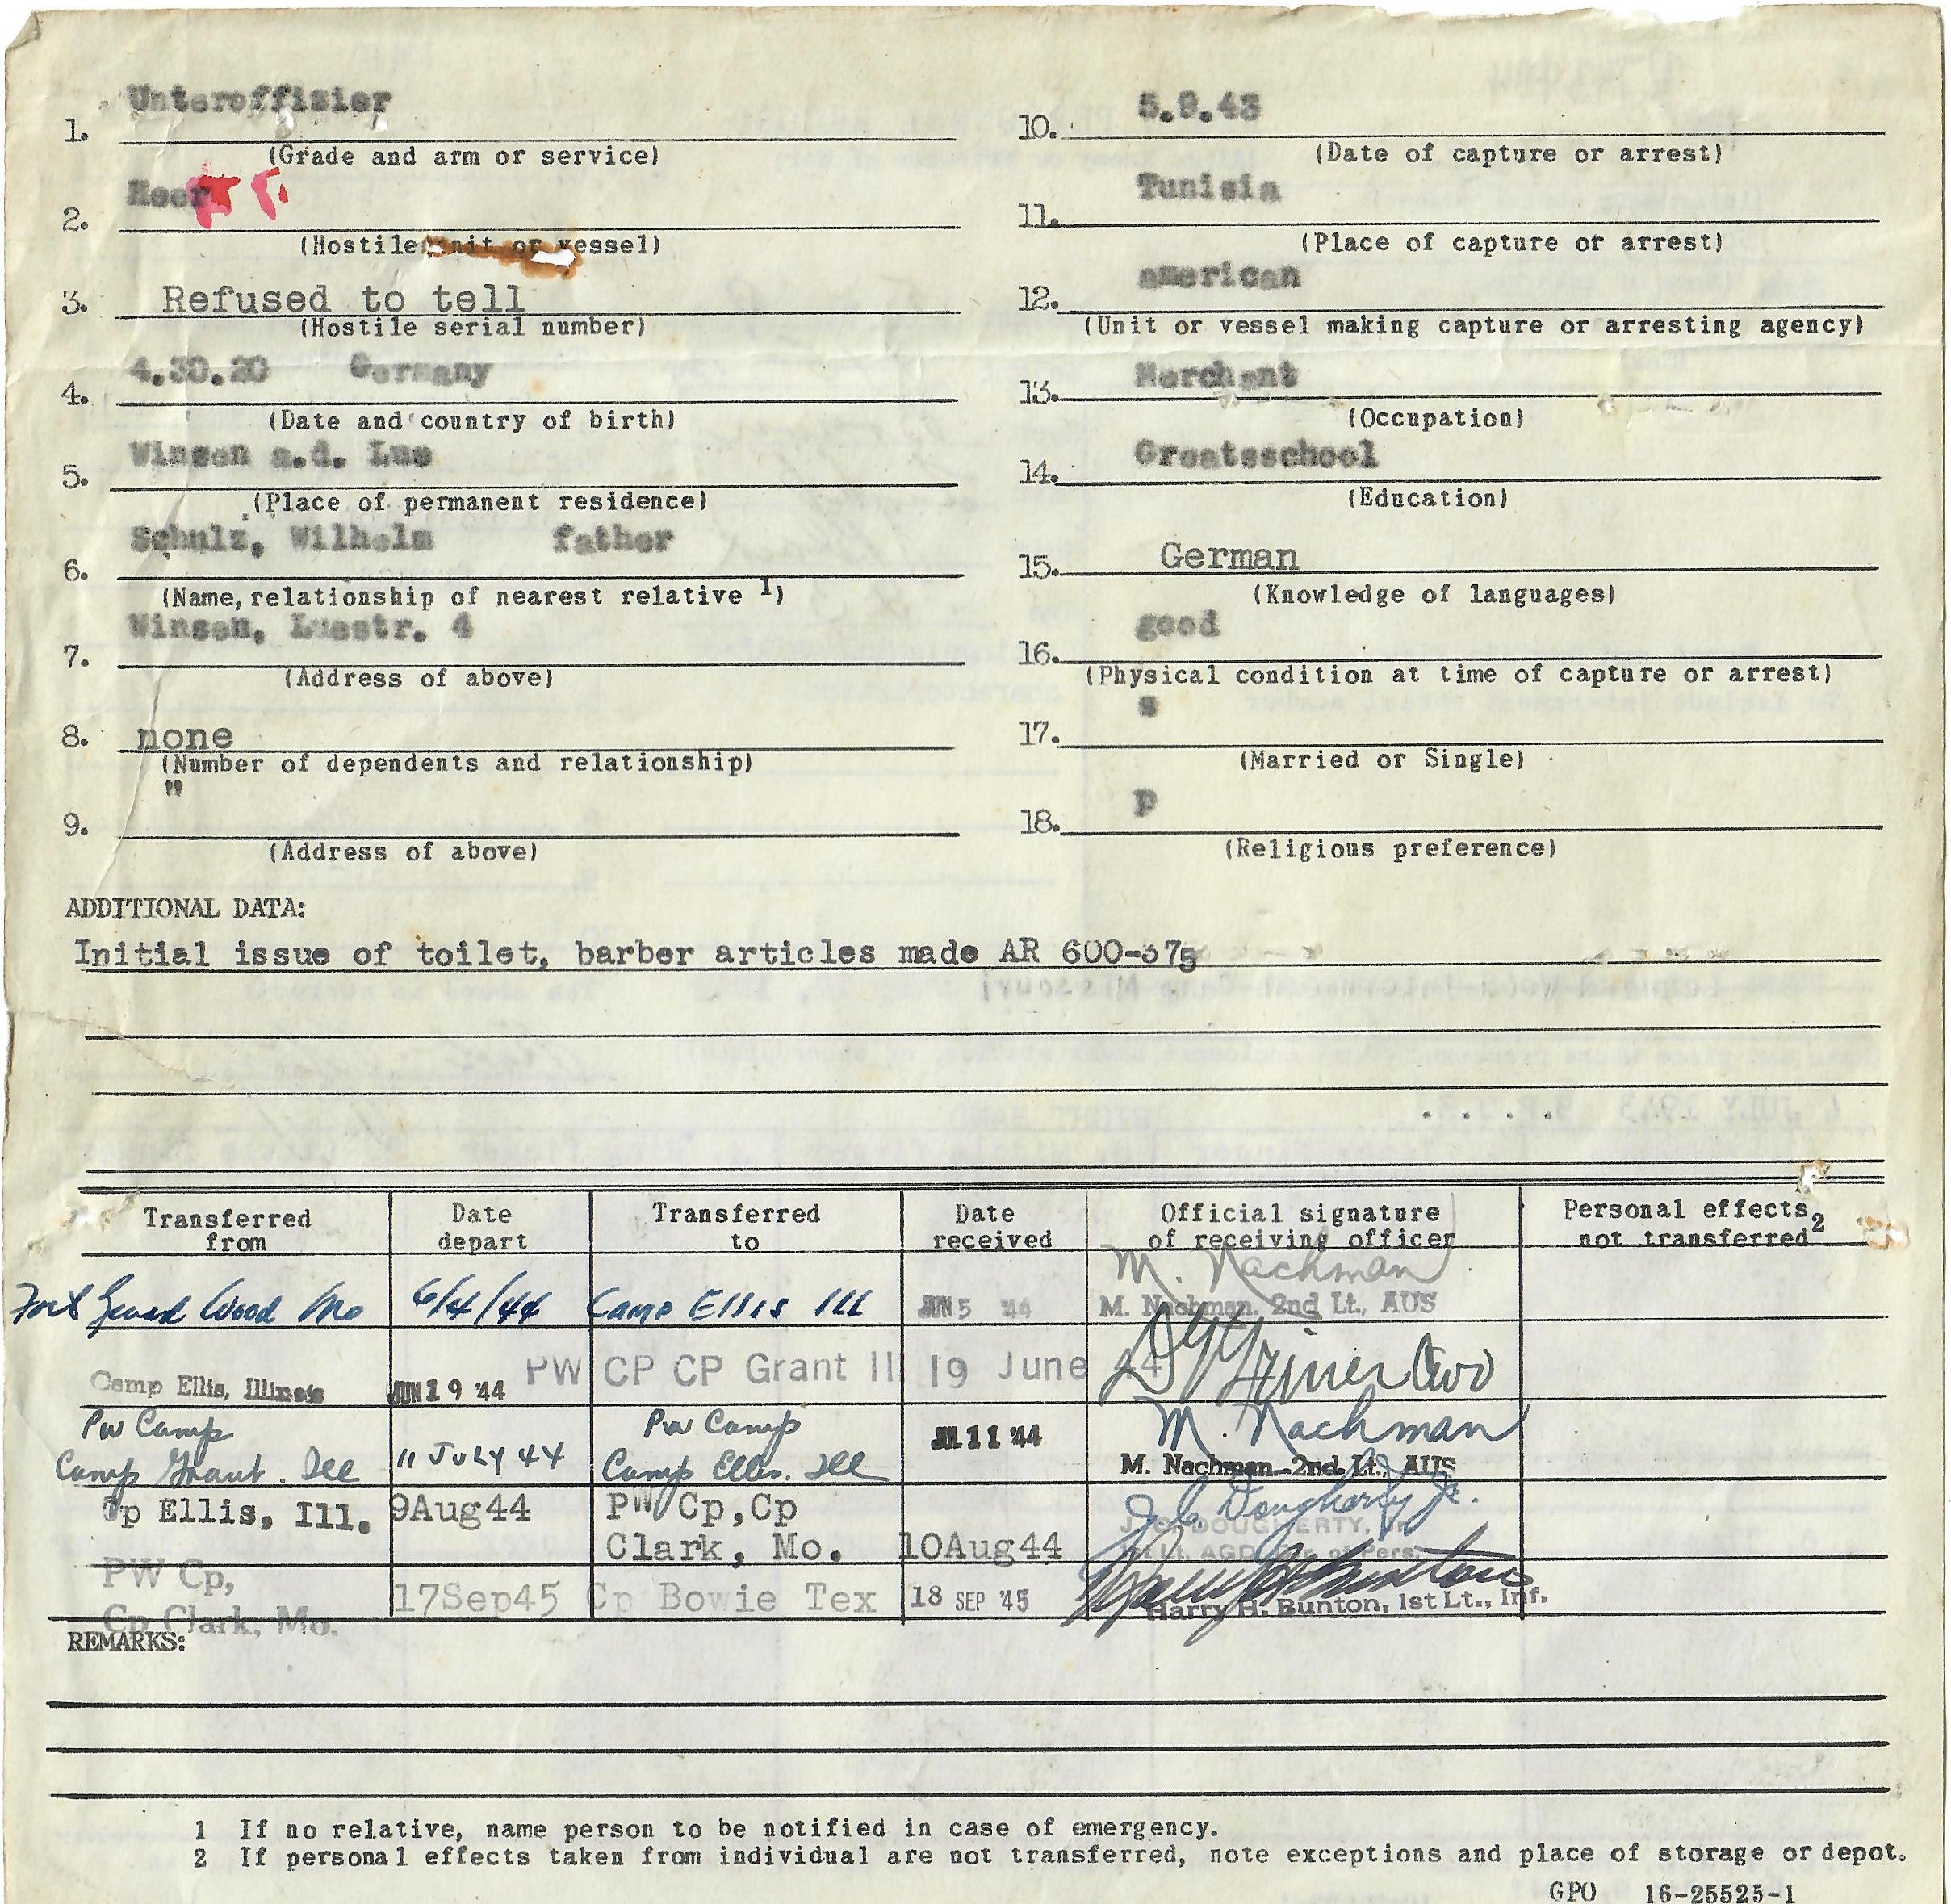 Unteroffizier
1.
(Grade and arm or service)
Heer
2.
(Hostile unit or vessel)
3. Refused to tell
(Hostile serial number)
4.30.20 Germany
4.
(Date and country of birth)
Winsen a.d. Lue
5.
(Place of permanent residence)
Schulz, Wilhelm father
6.
(Name, relationship of nearest relative 1)
Winsen, Luestr. 4
7.
(Address of above)
8. none
(Number of dependents and relationship)
"
9.
(Address of above)
5.9.43
10.
(Date of capture or arrest)
Tunisia
11.
(Place of capture or arrest)
american
12.
(Unit or vessel making capture or arresting agency)
Merchant
13.
(Occupation)
14.
(Education)
15. German
(Knowledge of languages)
good
16.
(Physical condition at time of capture or arrest)
s
17.
(Married or Single)
p
18.
(Religious preference)
ADDITIONAL DATA:
Initial issue of toilet, barber articles made AR 600-375
Transferred from
Date depart
Transferred to
Date received
Official signature of receiving officer
Personal effects not transferred 2
M. Nachman
Wood Mo 6/4/44 Camp Ellis Ill JUN 5 '44 M. Nachman. 2nd Lt., AUS
Camp Ellis, Illinois JUN 19 '44 PW CP CP Grant Il 19 June 44
PW Camp PW Camp JUL 11 '44 M. Nachman
Camp Grant. Ill 11 JULY 44 Camp Ellis. Ill M. Nachman. 2nd. Lt., AUS
Cp Ellis, Ill. 9Aug44 PW Cp,Cp J. C. Dougherty Jr.
Clark, Mo. 10Aug44 J. C. DOUGHERTY, Jr.
1st Lt. AGD
PW Cp, 17Sep45 Cp Bowie Tex 18 SEP '45
Cp Clark, Mo. Harry H. Bunton, 1st Lt., Inf.
REMARKS:
1 If no relative, name person to be notified in case of emergency.
2 If personal effects taken from individual are not transferred, note exceptions and place of storage or depot.
GPO 16-25525-1